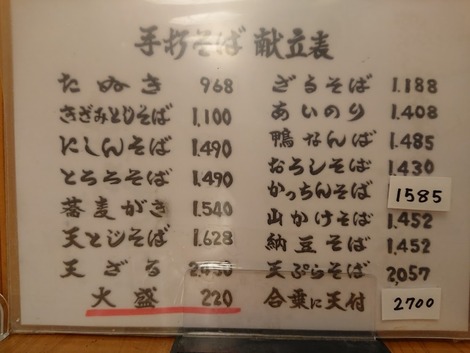 手打そば 献立表
たぬき 968
きざみとじそば 1,100
にしんそば 1,490
とろろそば 1,490
蕎麦がき 1,540
天とじそば 1,628
天ざる
大盛 220
ざるそば 1,188
あいのり 1,408
鴨なんば 1,485
おろしそば 1,430
かっちんそば 1585
山かけそば 1,452
納豆そば 1,452
天ぷらそば 2,057
合乗に天付 2700